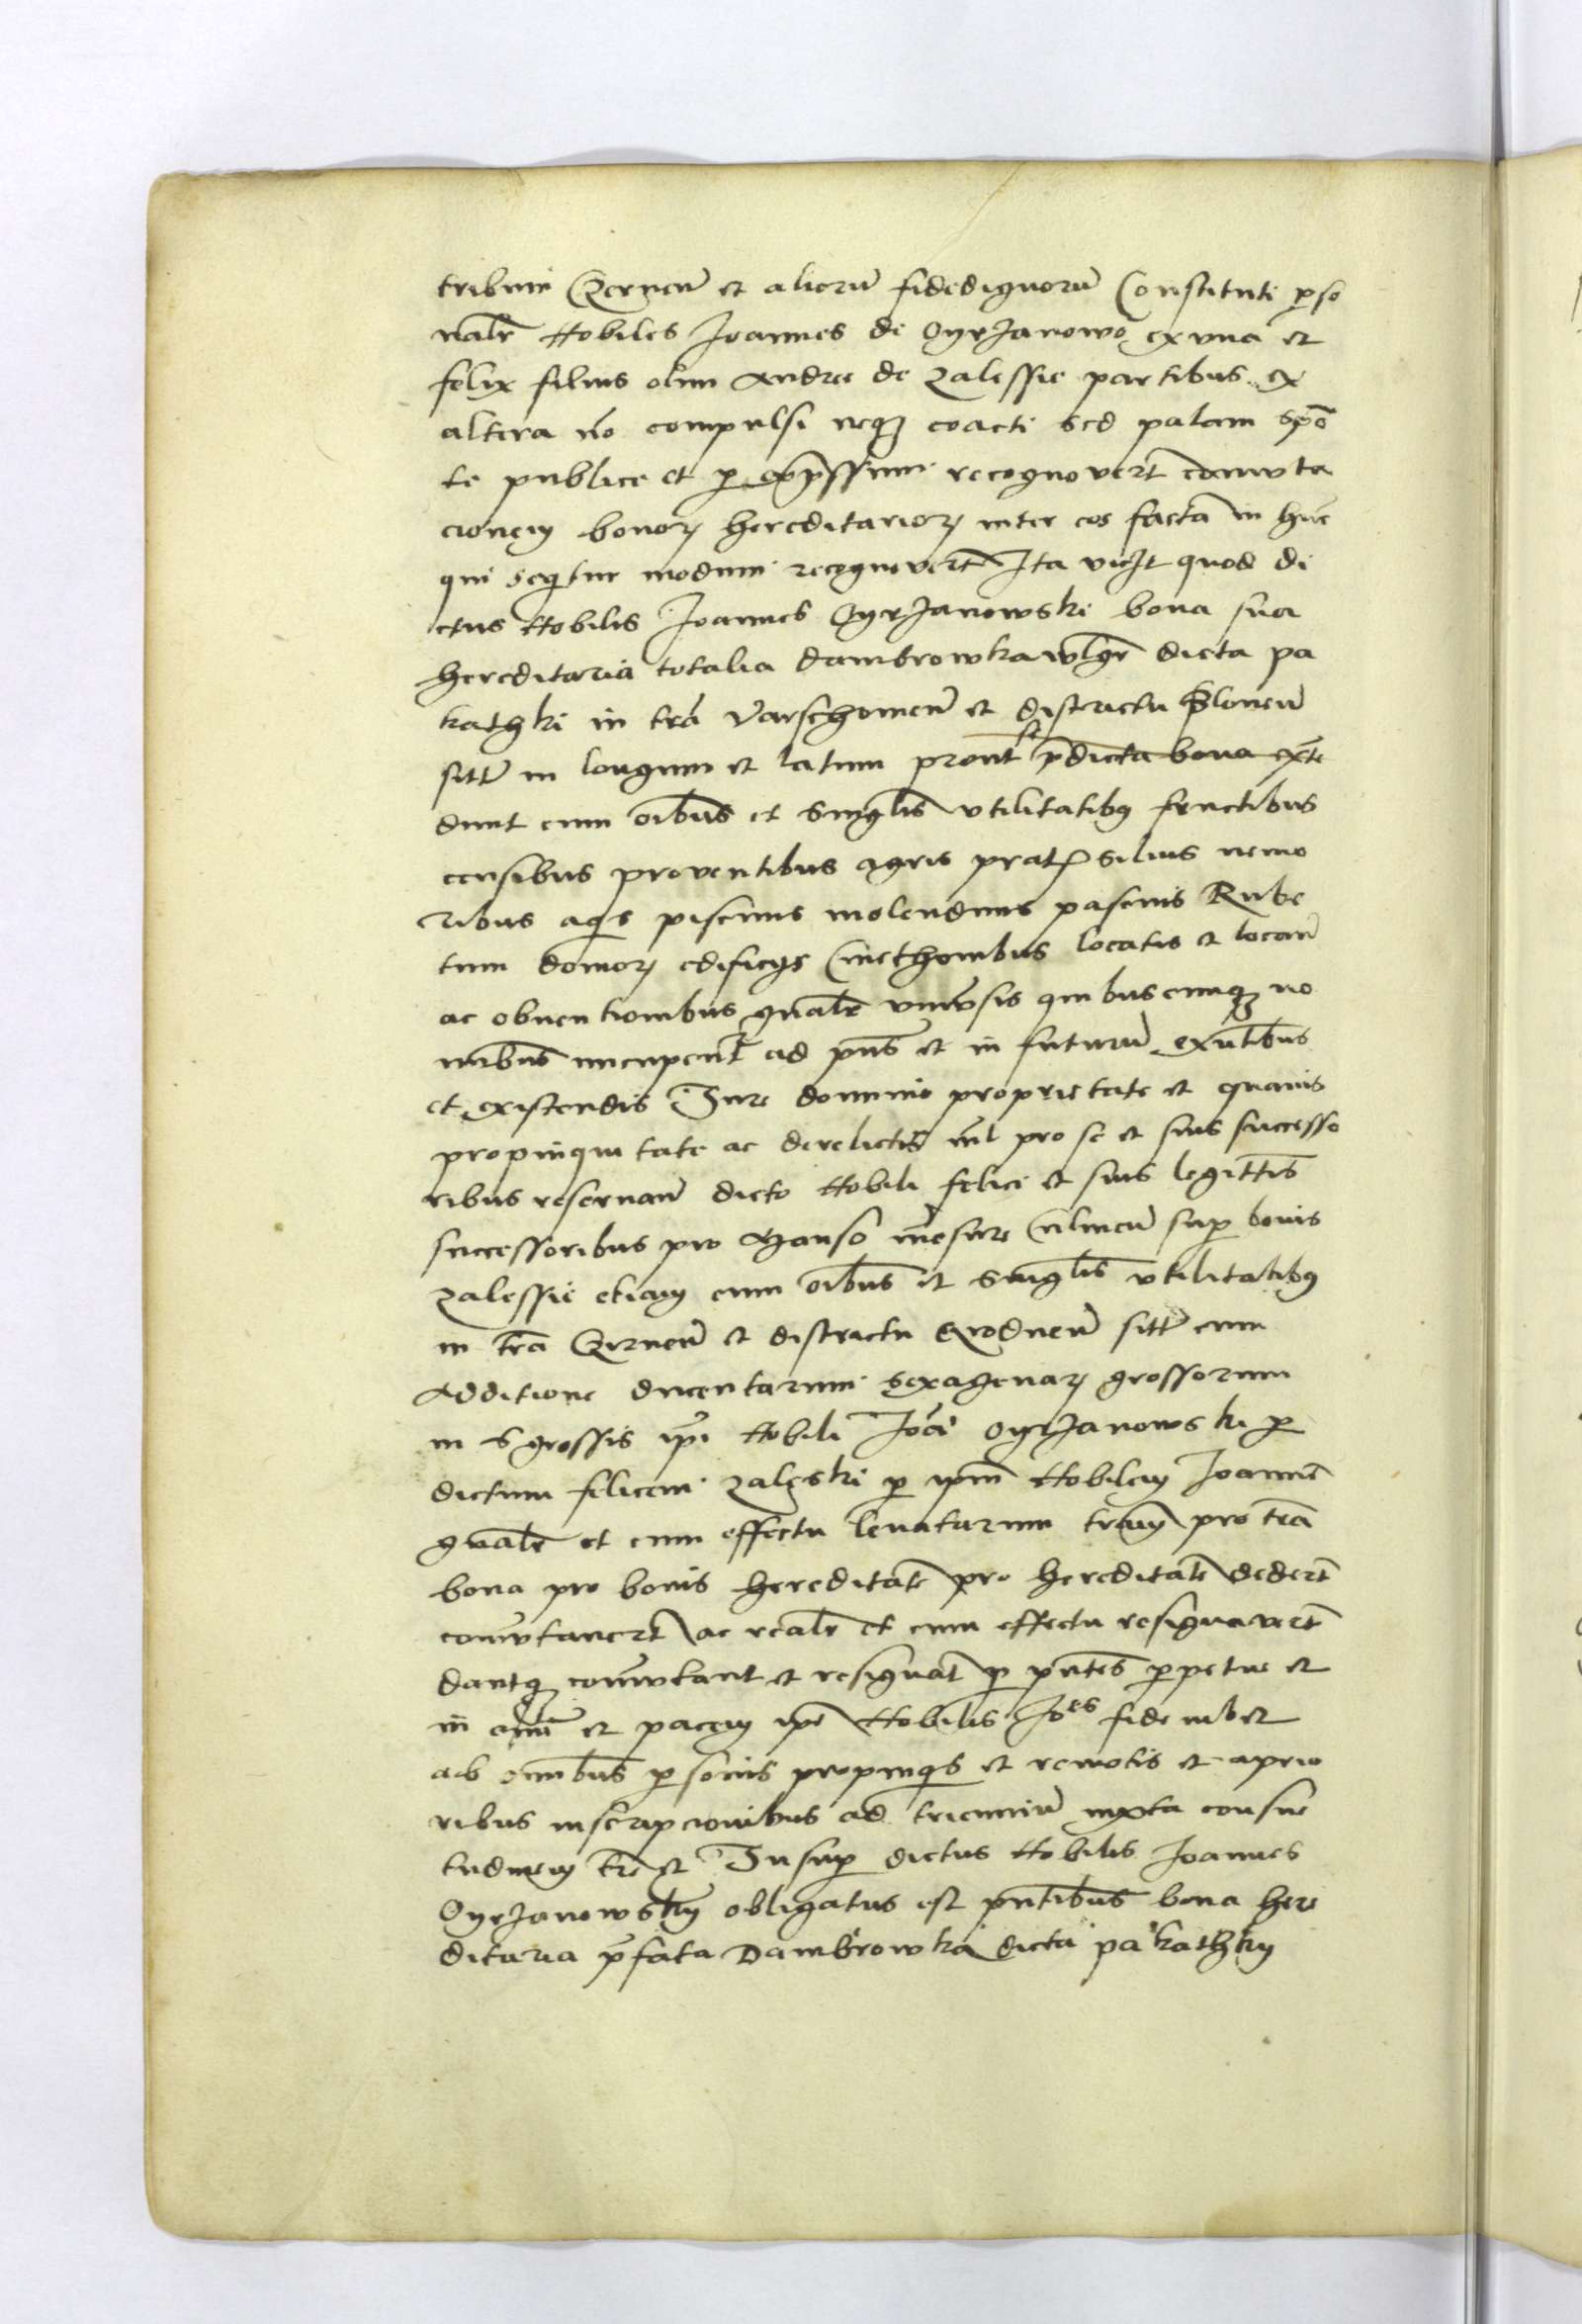 tribuni Czernen̄ et aliorū fidedignorū Constituti p̱so
nalr̄ Nobiles Joannes de OyrJanowo ex vna et
felix filius olim Andree de Zalessie partibus ex
altera nō compulsi neqʒ coacti sed palam spō
te publice et p̱ exp̄ssum recognovert̄ cōmuta
cionem bonoꝝ hereditarioꝝ inter eos factā in hūc
qui sequitur modum recognovert̄ Ita vicʒ quod di
ctus Nobilis Joannes OyrJanowski bona sua
hereditaria totalia dambrowka wlgr̄ dicta pa
kathki in trā Varschowien̄ et districtu Blonen̄
sitt̄ in longum et latum prout se p̄dicta bona extē
dunt cum oībus et singlīs vtilitatibꝯ fructibus
censibus proventibus agris pratꝭ silvis nemo
ribus aqīs piscinis molendinis pascuis Rube
tum domoꝝ edificijs Cmethonibus locatis et locan̄
ac obuentionibus gnālr̄ vniv̄sis quibuscumqʒ no
mibūs nuncupent̄ ad pn̄s et in futurū exn̄tibus
et existendis Jure dominio proprietate et quauis
propinquitate ac derelictis nīl pro se et suis successo
ribus reseruan̄ dicto Nobili felici et suis legittīs
successoribus pro Manso mēsure Culmen̄ sup̱ bonis
Zalessie etiam cum oībus et singlīs vtilitatibꝯ
in trā Czrnen̄ et districtu Grodnen̄ sitt̄ cum
Additione ducentarum sexagenaꝝ grossorum
in s grossis ip̄i Nobili Joāi OyrJanowski p̱
dictum felicem Zaleski p̱ ip̄m Nobilem Joannē
gnālr̄ et cum effectu leuatarum trām pro trā
bona pro bonis hereditatē pro hereditatē dedert̄
comutauert̄ ac realr̄ et cum effectu resignavert̄
dantqʒ comutant et resignāt p̱ pn̄tes p̱petue et
in evū et pacem ip̄e Nobilis Joes fideiubet
ab omnībus p̱sonis propinqīs et remotis et a prio
ribus inscripcionibus ad trienniū iuxta consue
tudinem trē et Insup̱ dictus Nobilis Joannes
OyrJanowsky obligatus est pn̄tibus bona here
ditaria p̄fata Dambrowka dicta pakathky